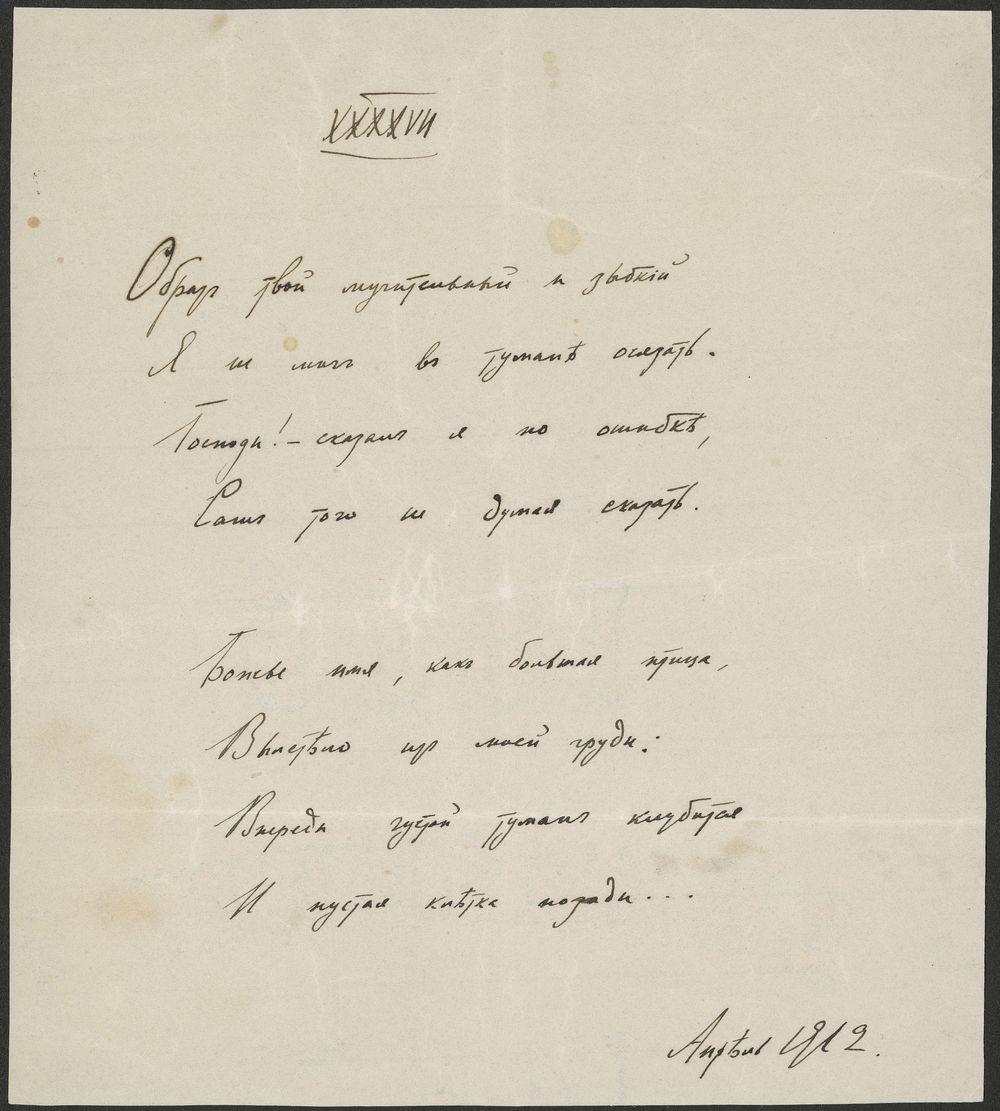 XXXXVII
Образъ твой мучительный и зыбкій
Я не могъ въ туманѣ осязать.
Господи! – сказалъ я по ошибкѣ,
Самъ того не думая сказать.
Божье имя, какъ большая птица,
Вылетѣло изъ моей груди:
Впереди густой туманъ клубится
И пустая клѣтка позади...
Апрѣль 1912.